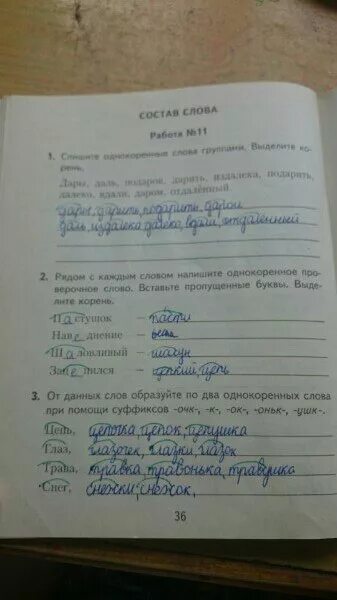 СОСТАВ СЛОВА
Работа №11
1. Спишите однокоренные слова группами. Выделите ко-
рень.
Дары, даль, подарок, дарить, издалека, подарить,
далеко, вдали, даром, отдалённый
дары, дарить, подарить, даром
даль, издалека далеко, вдали, отдаленный
2. Рядом с каждым словом напишите однокоренное про-
верочное слово. Вставьте пропущенные буквы. Выде-
лите корень.
Пастушок – пасти
Нав е днение –
Ш а ловливый – шалун
Зац е пился – цепкий, цепь
3. От данных слов образуйте по два однокоренных слова
при помощи суффиксов -очк-, -к-, -ок-, -оньк-, -ушк-.
Цепь, цепочка, цепок, цепушка
Глаз, глазочек, глазки, глазок
Трава, травка травонька, травушка
Снег, снежки, снежок,
36